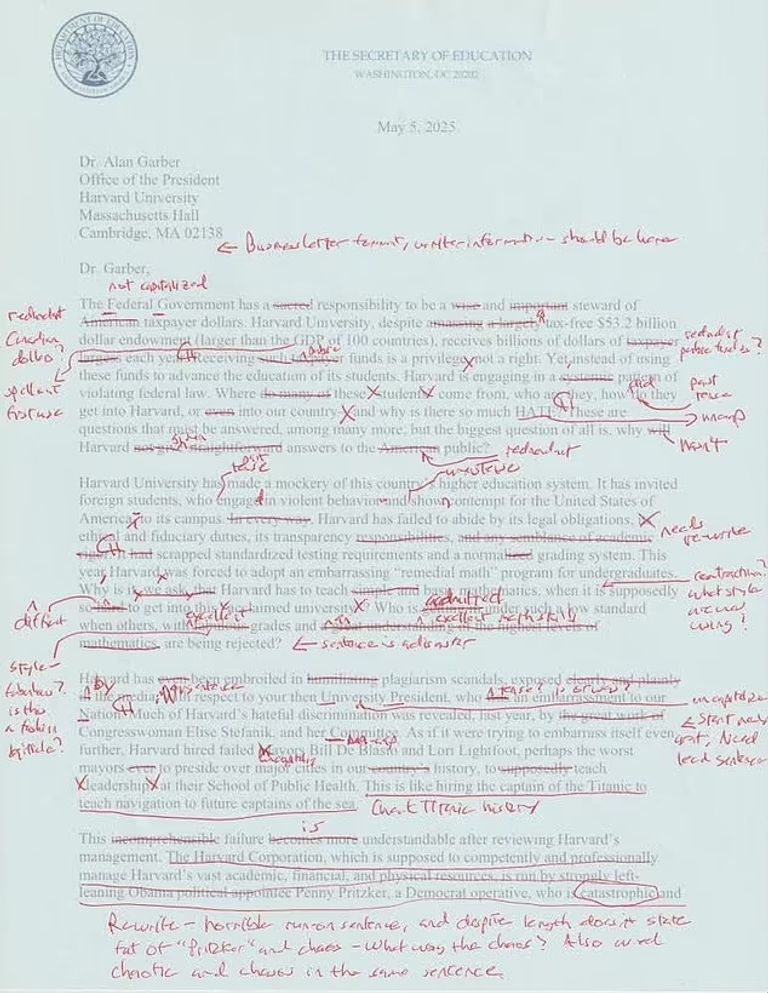 DEPARTMENT OF EDUCATION
THE SECRETARY OF EDUCATION
WASHINGTON, DC 20202
May 5, 2025
Dr. Alan Garber
Office of the President
Harvard University
Massachusetts Hall
Cambridge, MA 02138
← Business letter format, writer information should be here
Dr. Garber,
not capitalized
The Federal Government has a sacred responsibility to be a wise and important steward of
American taxpayer dollars. Harvard University, despite amassing a largely tax-free $53.2 billion
dollar endowment (larger than the GDP of 100 countries), receives billions of dollars of taxpayer
largess each year. Receiving such taxpayer funds is a privilege, not a right. Yet, instead of using
these funds to advance the education of its students, Harvard is engaging in a systemic pattern of
violating federal law. Where do many of these "students" come from, who are they, how do they
get into Harvard, or even into our country - and why is there so much HATE? These are
questions that must be answered, among many more, but the biggest question of all is, why will
Harvard not give straightforward answers to the American public?
redundant
Canadian
dollars?
spell out
first use
redundant
past
tense
uncap
won't
redundant
Harvard University has made a mockery of this country's higher education system. It has invited
foreign students, who engage in violent behavior and show contempt for the United States of
America, to its campus. In every way, Harvard has failed to abide by its legal obligations, its
ethical and fiduciary duties, its transparency responsibilities, and any semblance of academic
rigor. It had scrapped standardized testing requirements and a normalized grading system. This
year Harvard was forced to adopt an embarrassing "remedial math" program for undergraduates.
Why is it, we ask, that Harvard has to teach simple and basic mathematics, when it is supposedly
so hard to get into this "acclaimed university"? Who is getting in under such a low standard
when others, with fabulous grades and a great understanding of the highest levels of
mathematics, are being rejected?
needs
re-write
contraction?
what style
are we
using?
difficult
admitted
excellent
← sentence is a disaster
style –
fabulous?
is this
a fashion
article?
Harvard has even been embroiled in humiliating plagiarism scandals, exposed clearly and plainly
in the media, with respect to your then University President, who was an embarrassment to our
Nation. Much of Harvard's hateful discrimination was revealed, last year, by the great work of
Congresswoman Elise Stefanik, and her Committee. As if it were trying to embarrass itself even
further, Harvard hired failed Mayors Bill De Blasio and Lori Lightfoot, perhaps the worst
mayors ever to preside over major cities in our country's history, to supposedly teach
"leadership" at their School of Public Health. This is like hiring the captain of the Titanic to
teach navigation to future captains of the sea.
by
uncapitalize
← Start new
lead sentence
Check Titanic history
This incomprehensible failure becomes more understandable after reviewing Harvard's
is
management. The Harvard Corporation, which is supposed to competently and professionally
manage Harvard's vast academic, financial, and physical resources, is run by strongly left-
leaning Obama political appointee Penny Pritzker, a Democrat operative, who is catastrophic and
Rewrite – horrible run on sentence, and despite length doesn't state
"Pritzker" and chaos – What was the chaos? Also used
chaotic and chaos in the same sentence.